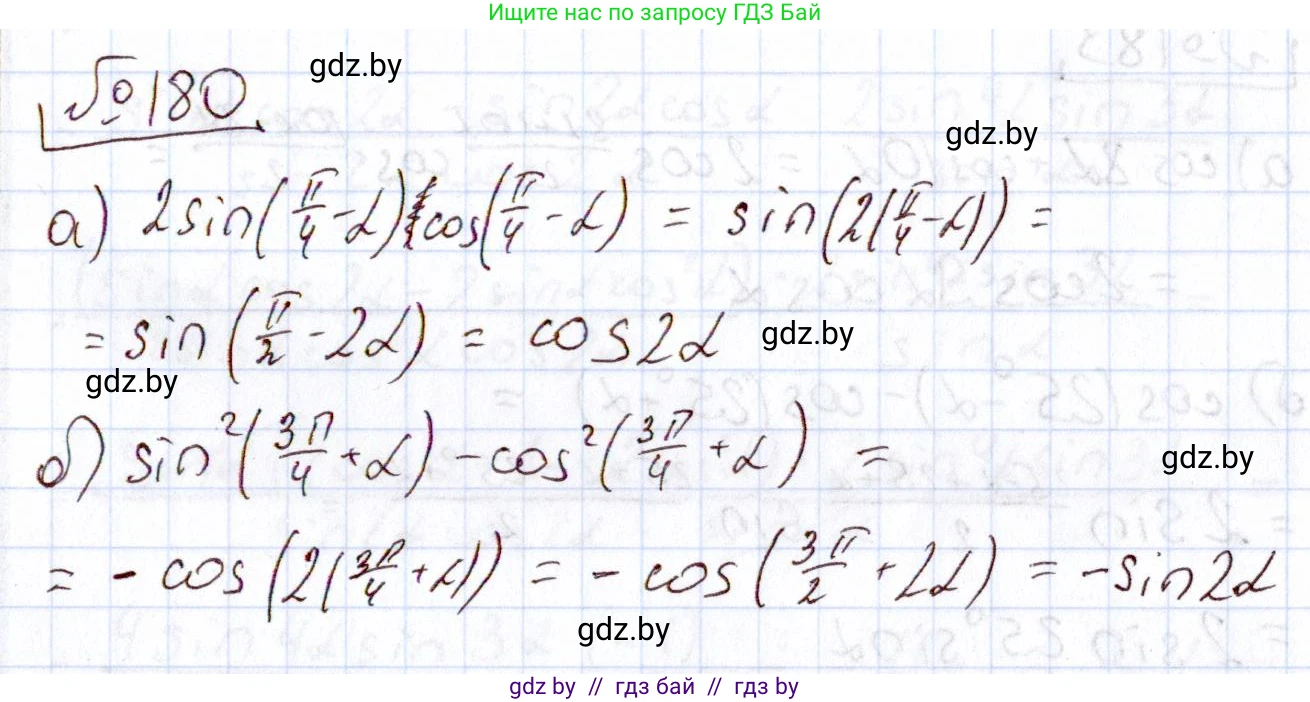 Ищите нас по запросу ГДЗ Бай
№180
gdz.by
gdz.by
а) 2sin(π/4-α)cos(π/4-α) = sin(2(π/4-α)) =
= sin(π/2-2α) = cos2α
gdz.by
gdz.by
б) sin²(3π/4+α)-cos²(3π/4+α) =
gdz.by
= -cos(2(3π/4+α)) = -cos(3π/2+2α) = -sin2α
gdz.by
gdz by // гдз бай // гдз by